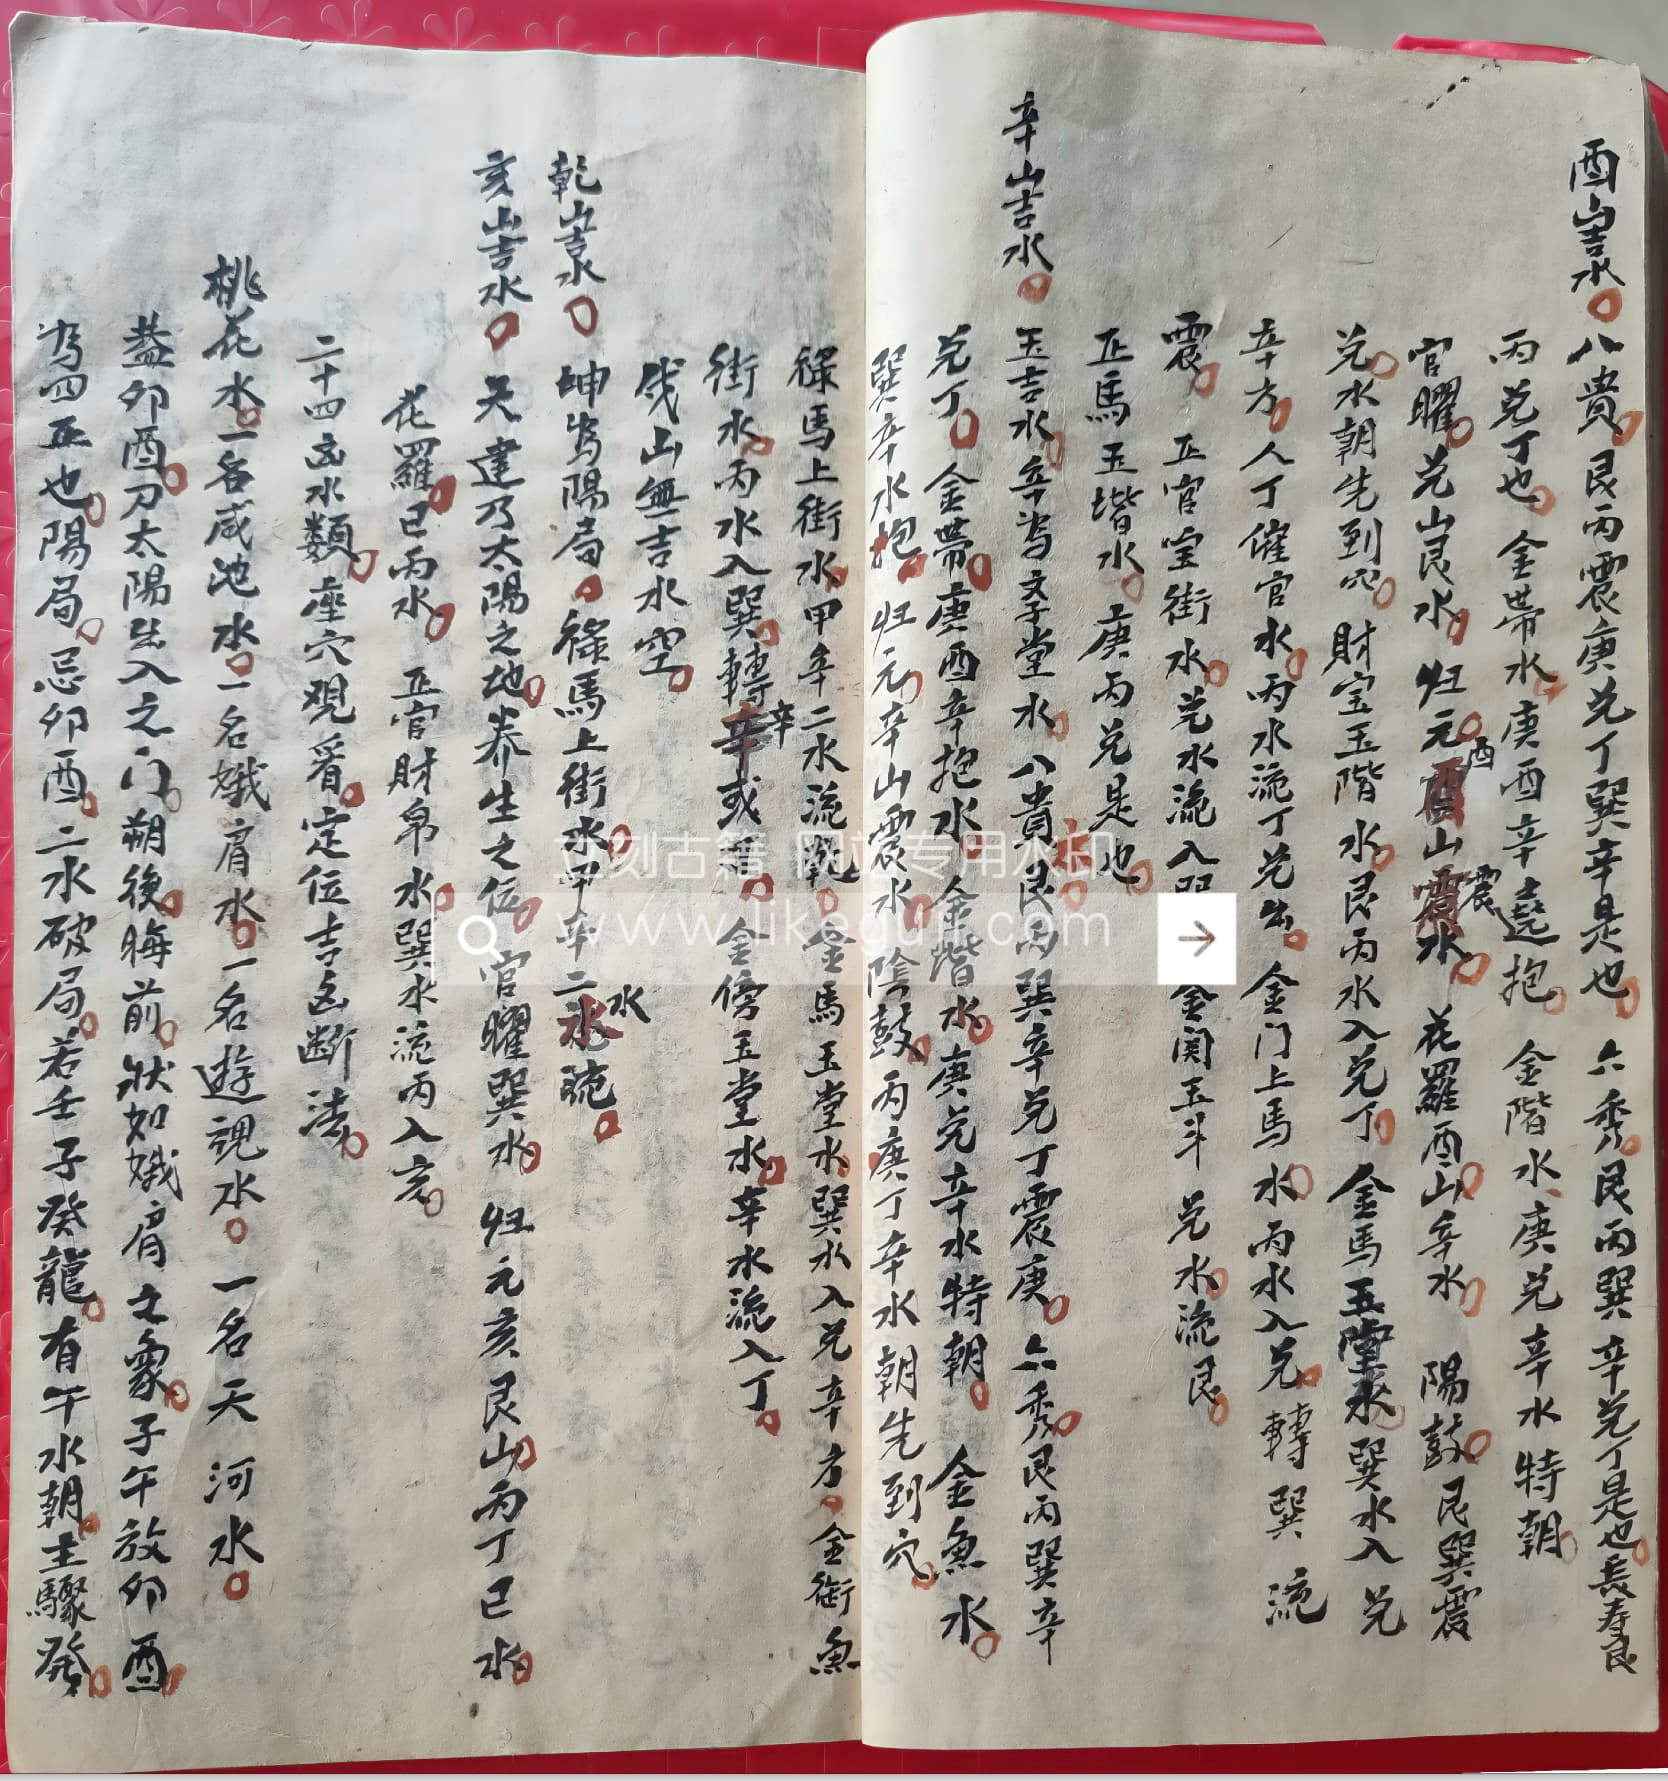 酉山吉水 八貴艮丙震庚兑丁巽辛是也 六秀艮丙巽辛兑丁是也長寿艮
丙兑丁也 金帶水庚酉辛遶抱 金階水庚兑辛水特朝
官曜兑山艮水 归元酉山震水 花羅酉山辛水 陽鼓艮巽震
兑水朝先到穴 財宝玉階水艮丙水入兑丁 金馬玉堂水巽水入兑
辛方人丁催官水丙水流丁兑出 金门上馬水丙水入兑轉巽流
震 正官宝街水兑水流入 金関玉斗 兑水流艮
正馬玉堦水 庚丙兑是也
辛山吉水 玉吉水辛為文子堂水 八貴艮丙巽辛兑丁震庚 六秀艮丙巽辛
兑丁 金帶庚酉辛抱水 金堦水庚兑辛水特朝 金魚水
巽辛水抱 归元辛山震水 陰鼓丙庚丁辛水朝先到穴
禄馬上街水甲辛二水流乾 金馬玉堂水巽水入兑辛方 金街魚
街水丙水入巽轉辛或 金傍玉堂水辛水流入丁
戌山無吉水空
乾山吉水 坤為陽局 禄馬上街水甲辛二水流
亥山吉水 天建乃太陽之地养生之位 官曜巽水 归元亥艮山丙丁巳水
花羅巳丙水 正官財帛水巽水流丙入亥
二十四凶水類 座穴观看定位吉凶断法
桃花水一名咸池水一名娥肩水一名遊魂水 一名天河水
葢卯酉刀太陽出入之门朔後晦前状如娥肩之象子午放卯酉
為四正也陽局忌卯酉二水破局若壬子癸龍有午水朝主驟發
立刻古籍 网站专用水印
www.likeguji.com